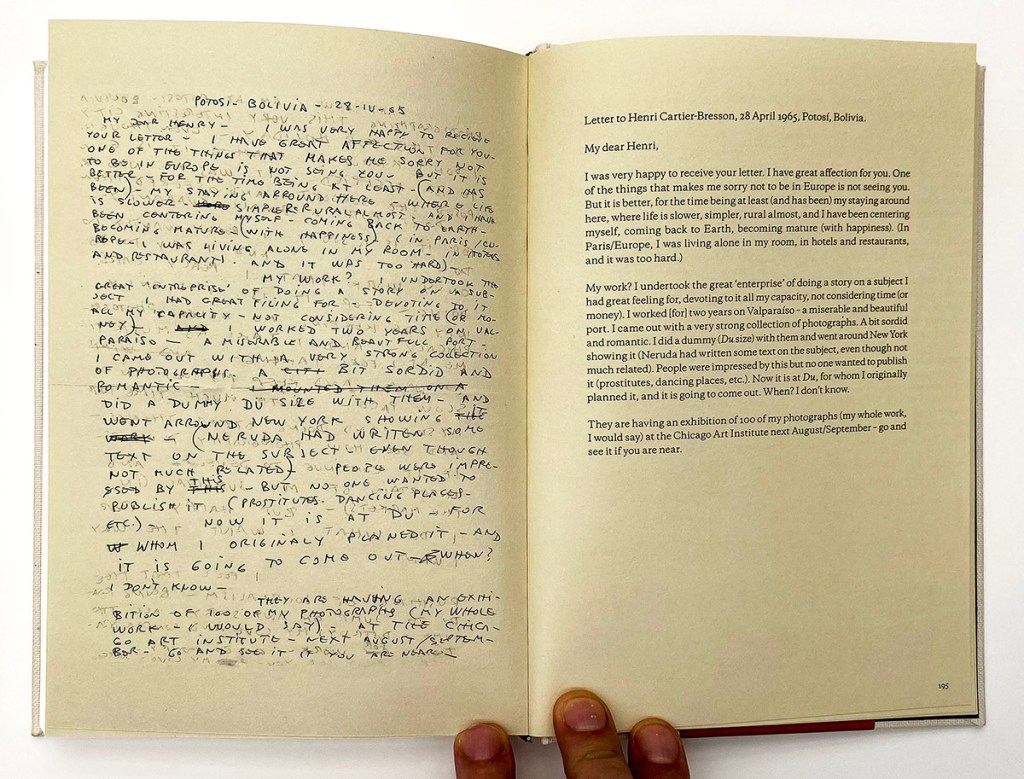 POTOSI - BOLIVIA - 28-IV-65
MY DEAR HENRY - I WAS VERY HAPPY TO RECIEVE
YOUR LETTER - I HAVE GREAT AFFECTION FOR YOU -
ONE OF THE THINGS THAT MAKES ME SORRY NOT
TO BE IN EUROPE IS NOT SEING YOU - BUT IT IS
BETTER - FOR THE TIME BEING AT LEAST - (AND HAS
BEEN) - MY STAYING ARROUND HERE - WHERE LIFE
IS SLOWER SIMPLER RURAL ALMOST - AND I HAVE
BEEN CENTERING MYSELF - COMING BACK TO EARTH -
BECOMING MATURE - (WITH HAPPINESS) (IN PARIS/EU-
ROPE - I WAS LIVING ALONE IN MY ROOM - IN HOTELS
AND RESTAURANTS. AND IT WAS TOO HARD) -
MY WORK? I UNDERTOOK THE
GREAT 'ENTREPRISE' OF DOING A STORY ON A SUB-
JECT I HAD GREAT FILING FOR - DEVOTING TO IT
ALL MY CAPACITY - NOT CONSIDERING TIME (OR MO-
NEY) - AND I WORKED TWO YEARS ON VAL-
PARAISO - A MISORABLE AND BEAUTIFULL PORT -
I CAME OUT WITH A VERY STRONG COLLECTION
OF PHOTOGRAPHS. A BIT SORDID AND
ROMANTIC - I MOUNTED THEM ON A
DID A DUMMY DU SIZE WITH THEM - AND
WENT ARROUND NEW YORK SHOWING THE IT
WORK - (NERUDA HAD WRITEN SOME
TEXT ON THE SUBJECT - EVEN THOUGH
NOT MUCH RELATED) PEOPLE WERE IMPRE-
SSED BY THIS THIS - BUT NO ONE WANTED TO
PUBLISH IT (PROSTITUTES - DANCING PLACES -
ETC.) - NOW IT IS AT DU - FOR
WHOM I ORIGINALY PLANED IT - AND
IT IS GOING TO COME OUT - WHEN?
I DON'T KNOW -
THEY ARE HAVING AN EXHI-
BITION OF 100 OF MY PHOTOGRAPHS (MY WHOLE
WORK - I WOULD SAY) - AT THE CHICA-
GO ART INSTITUTE - NEXT AUGUST/SEPTEM-
BER - GO AND SEE IT IF YOU ARE NEAR -
Letter to Henri Cartier-Bresson, 28 April 1965, Potosí, Bolivia.
My dear Henri,
I was very happy to receive your letter. I have great affection for you. One
of the things that makes me sorry not to be in Europe is not seeing you.
But it is better, for the time being at least (and has been) my staying around
here, where life is slower, simpler, rural almost, and I have been centering
myself, coming back to Earth, becoming mature (with happiness). (In
Paris/Europe, I was living alone in my room, in hotels and restaurants,
and it was too hard.)
My work? I undertook the great 'enterprise' of doing a story on a subject I
had great feeling for, devoting to it all my capacity, not considering time (or
money). I worked [for] two years on Valparaíso – a miserable and beautiful
port. I came out with a very strong collection of photographs. A bit sordid
and romantic. I did a dummy (Du size) with them and went around New York
showing it (Neruda had written some text on the subject, even though not
much related). People were impressed by this but no one wanted to publish
it (prostitutes, dancing places, etc.). Now it is at Du, for whom I originally
planned it, and it is going to come out. When? I don't know.
They are having an exhibition of 100 of my photographs (my whole work,
I would say) at the Chicago Art Institute next August/September – go and
see it if you are near.
195